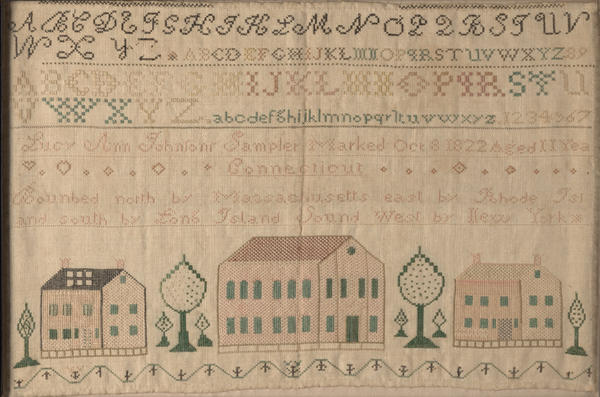 A B C D E F G H I J K L M N O P Q R S T U V
W X Y Z A B C D E F G H I J K L M N O P Q R S T U V W X Y Z 8 9
A B C D E F G H I J K L M N O P Q R S T U
V W X Y Z a b c d e f g h i j k l m n o p q r ſ t u v w x y z 1 2 3 4 5 6 7
Lucy Ann Johnsons Sampler Marked Oct 8 1822 Aged 11 Yea
Connecticut
Bounded north by Massachusetts east by Rhode Isl
and south by Long Island Sound West by New York